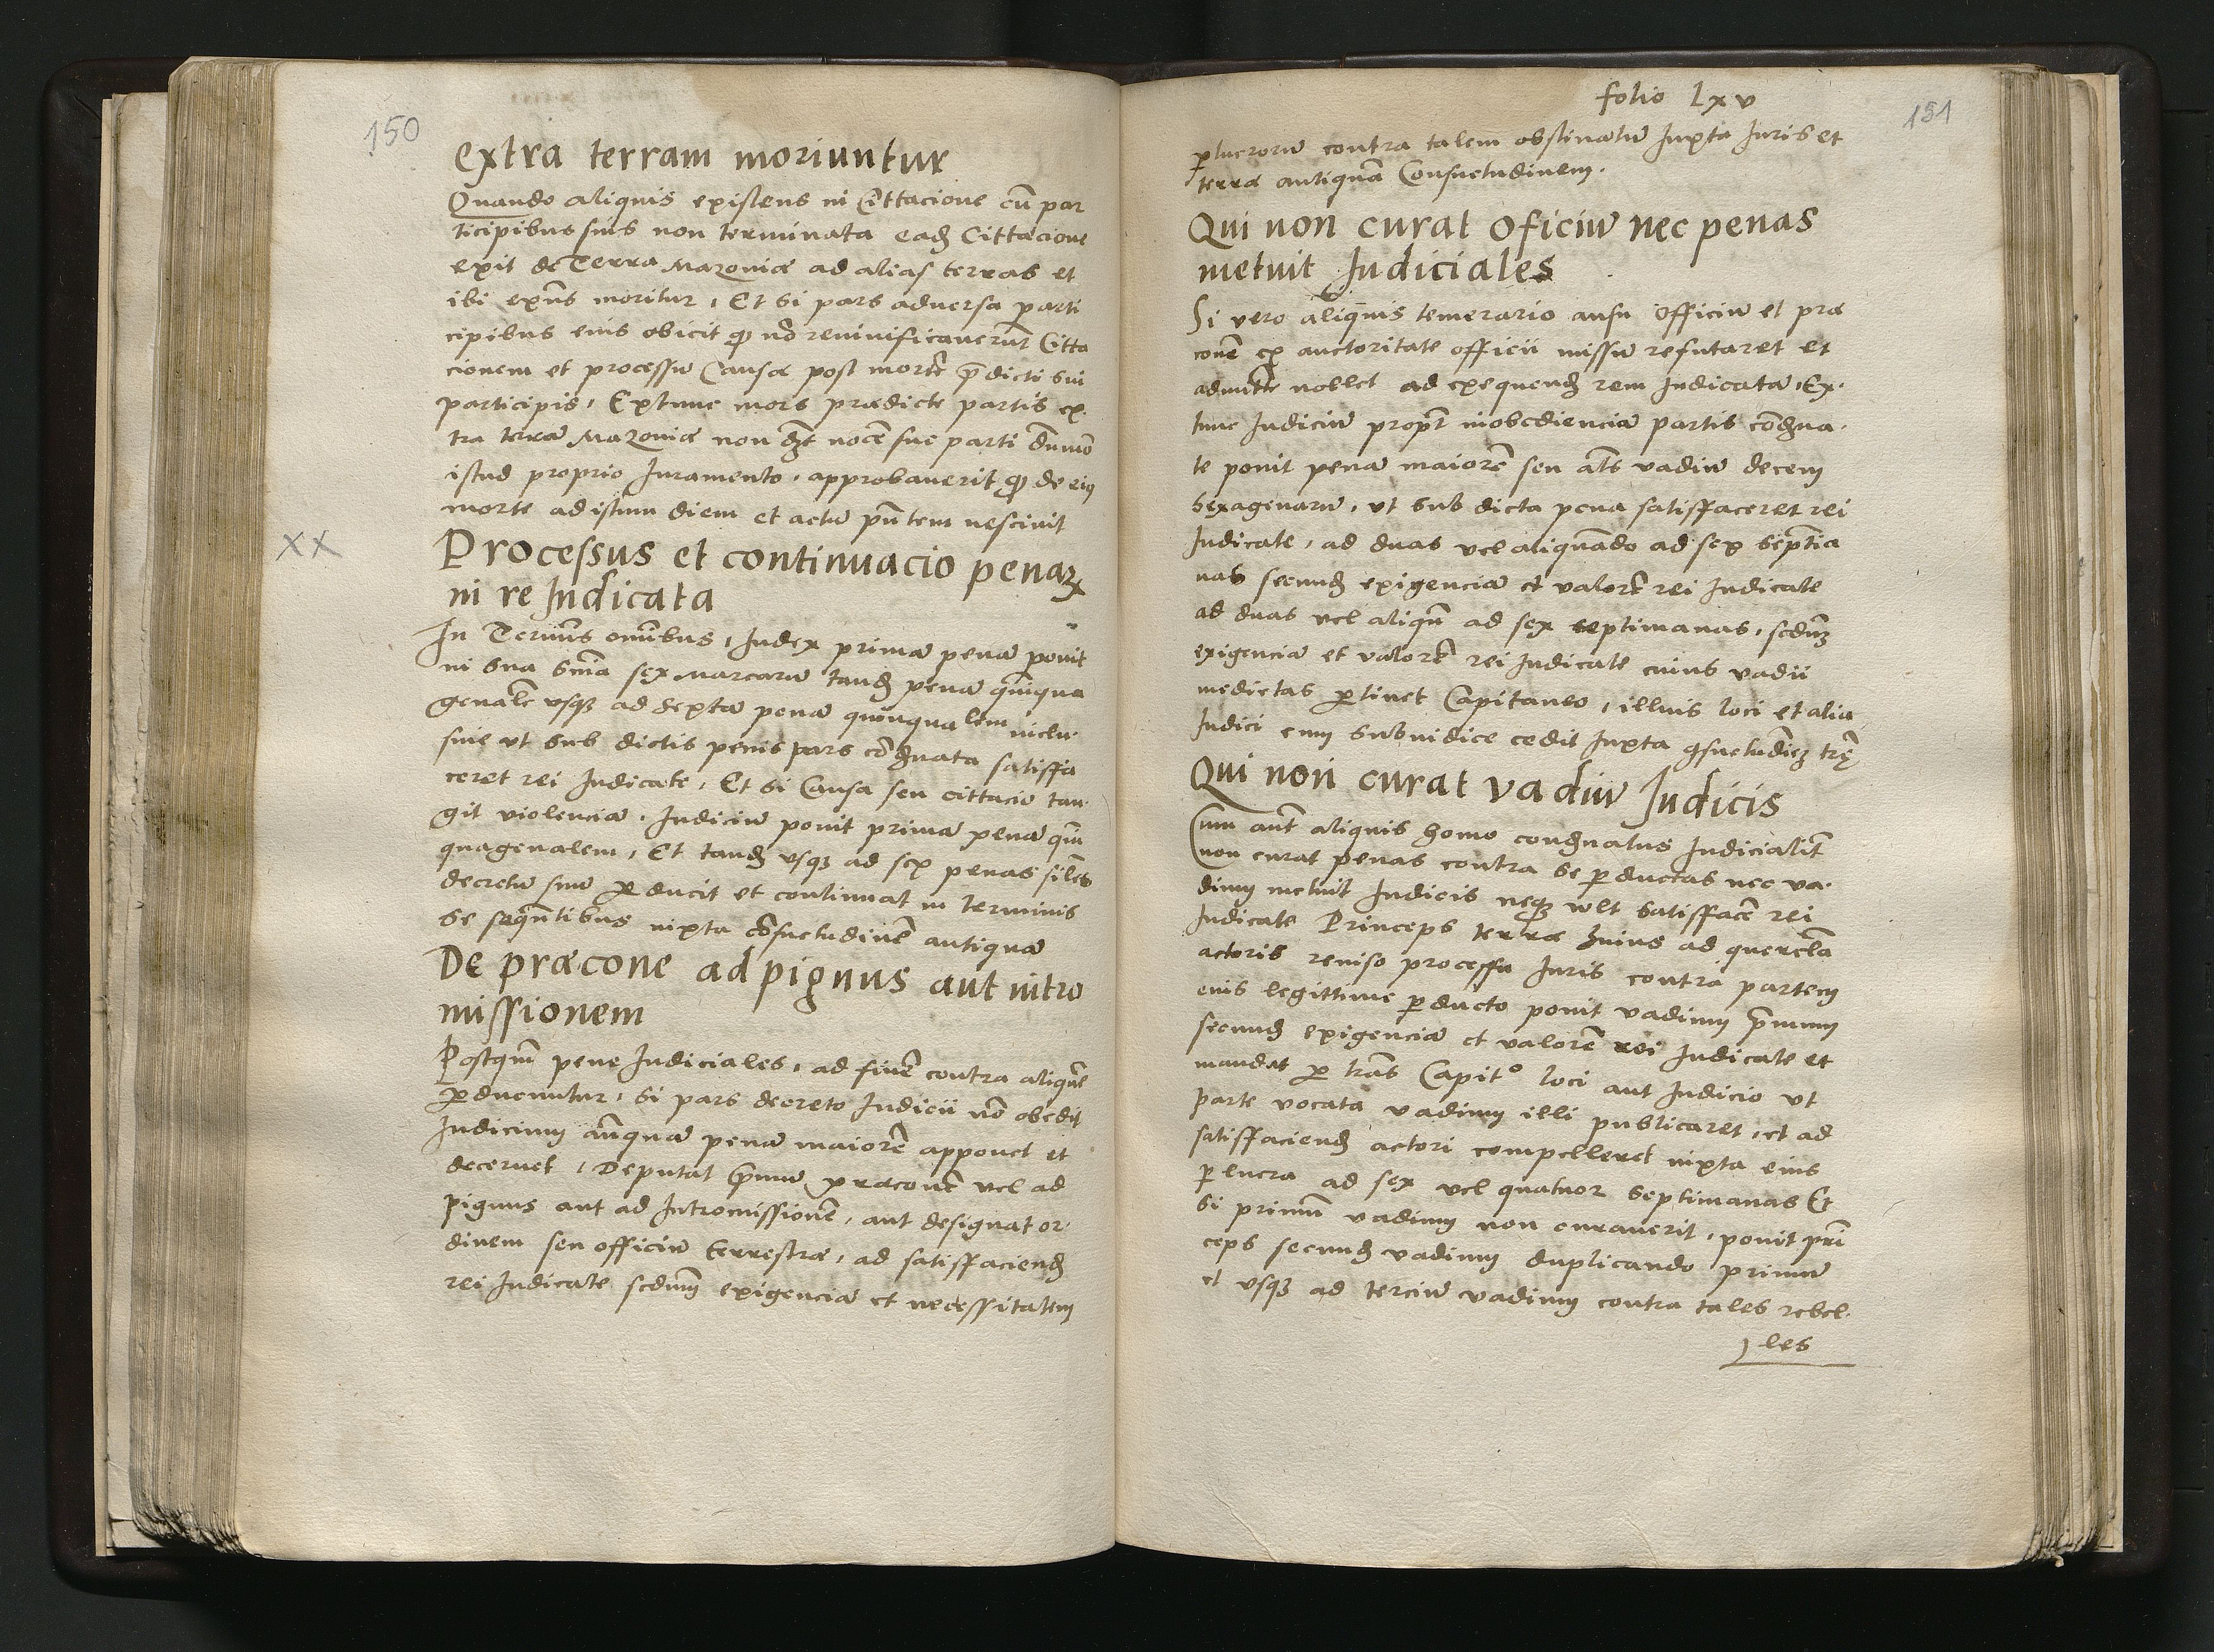 150
extra terram moriuntur
Quando aliquis existens in Cittacione cū par
ticipibus suis non terminata eadȝ Cittacione
exit de Terra Mazoniæ ad alias terras et
ibi exñs moritur, Et si pars aduersa parti
cipibus eius obicit nō reuiuificauerūt Citta
cionem et processū Causæ post mortē p̄dicti sui
participis, Extunc mors prædicte partis ex
tra terrā Mazoniæ non nocē sue parti dūmō
istud proprio Iuramento, approbauerit de eius
morte ad istum diem et actū pn̄tem nesciuit
xx
Processus et continuacio penaꝝ
in re Iudicata
In Terminis omībus, Iudex primā penā ponit
in sua snīa sex Marcarū tandȝ penā quinqua
genalē vsqȝ ad sextā penā quinqualem inclu
siue vt sub dictis penis pars cōdȝnata satisffa
ceret rei Iudicate, Et si Causa seu cittacio tan
git violenciā, Iudiciū ponit primā penā quin
quagenalem, Et tandȝ vsqȝ ad sex penas siles
decretū suū ꝑducit et continuat in terminis
se sequētibus iuxta cōsuetudinē antiquā
De præcone ad pignus aut intro
missionem
Postqm̄ pene Iudiciales, ad finē contra aliquē
ꝑducuntur, Si pars decreto Iudicii nō obedit
Iudicium penā maiorē apponet et
decernet, Deputat p̄mum præconē vel ad
pignus aut ad Intromissionē, aut designat or
dinem seu officiū terrestræ, ad satisffaciendȝ
rei Iudicate scdum exigenciā et necessitatem
folio lxv
151
ꝑlucrorū contra talem obstinatū Iuxta Iuris et
terræ antiquā Consuetudinem.
Qui non curat oficiū nec penas
metuit Iudiciales
Si vero aliquis temerario ausu officiū et præ
conē ex auctoritate officii missū refutaret et
admittē nollet ad exequendȝ rem Iudicatā, Ex
tunc Iudiciū propt̄ inobedienciā partis cōdȝna
te ponit penā maiorē seu als vadiū decem
sexagenarū, vt sub dicta pena satisffaceret rei
Iudicate, ad duas vel aliquando ad sex septia
nas secundȝ exigenciā et valorē rei Iudicate
ad duas vel aliqū ad sex septimanas, scdum
exigenciā et valorē rei Iudicate cuius vadii
medietas ꝑtinet Capitaneo, illius loci et alia
Iudici cum subiudice cedit Iuxta ꝯsuetudinē trę
Qui non curat vadiū Iudicis
Cum aut̄ aliquis homo condȝnatus Iudicialit̄
non curat penas contra se ꝑductas nec va
dium metuit Iudicis neqȝ wlt satisffacē rei
Iudicate Princeps terræ huius ad querelā
actoris reuiso processu Iuris contra partem
eius legittime ꝑducto ponit vadium p̄mum
secundȝ exigenciā et valorē rei Iudicate et
mandat ꝑ lras Capit° loci aut Iudicio vt
parte vocata vadium illi publicaret, et ad
satisffaciendȝ actori compelleret iuxta eius
ꝑlucra ad sex vel quatuor septimanas Et
si primum vadium non curauerit, ponit prī
ceps secundȝ vadium duplicando primū
et vsqȝ ad terciū vadium contra tales rebel
les